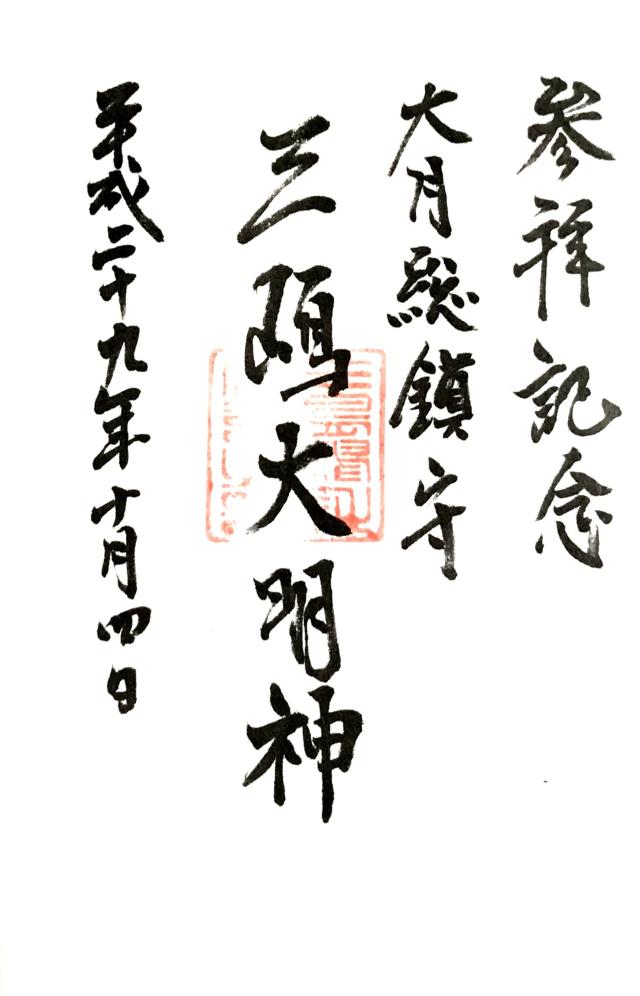 参拝記念
大月総鎮守
三嶋大明神
平成二十九年十月四日